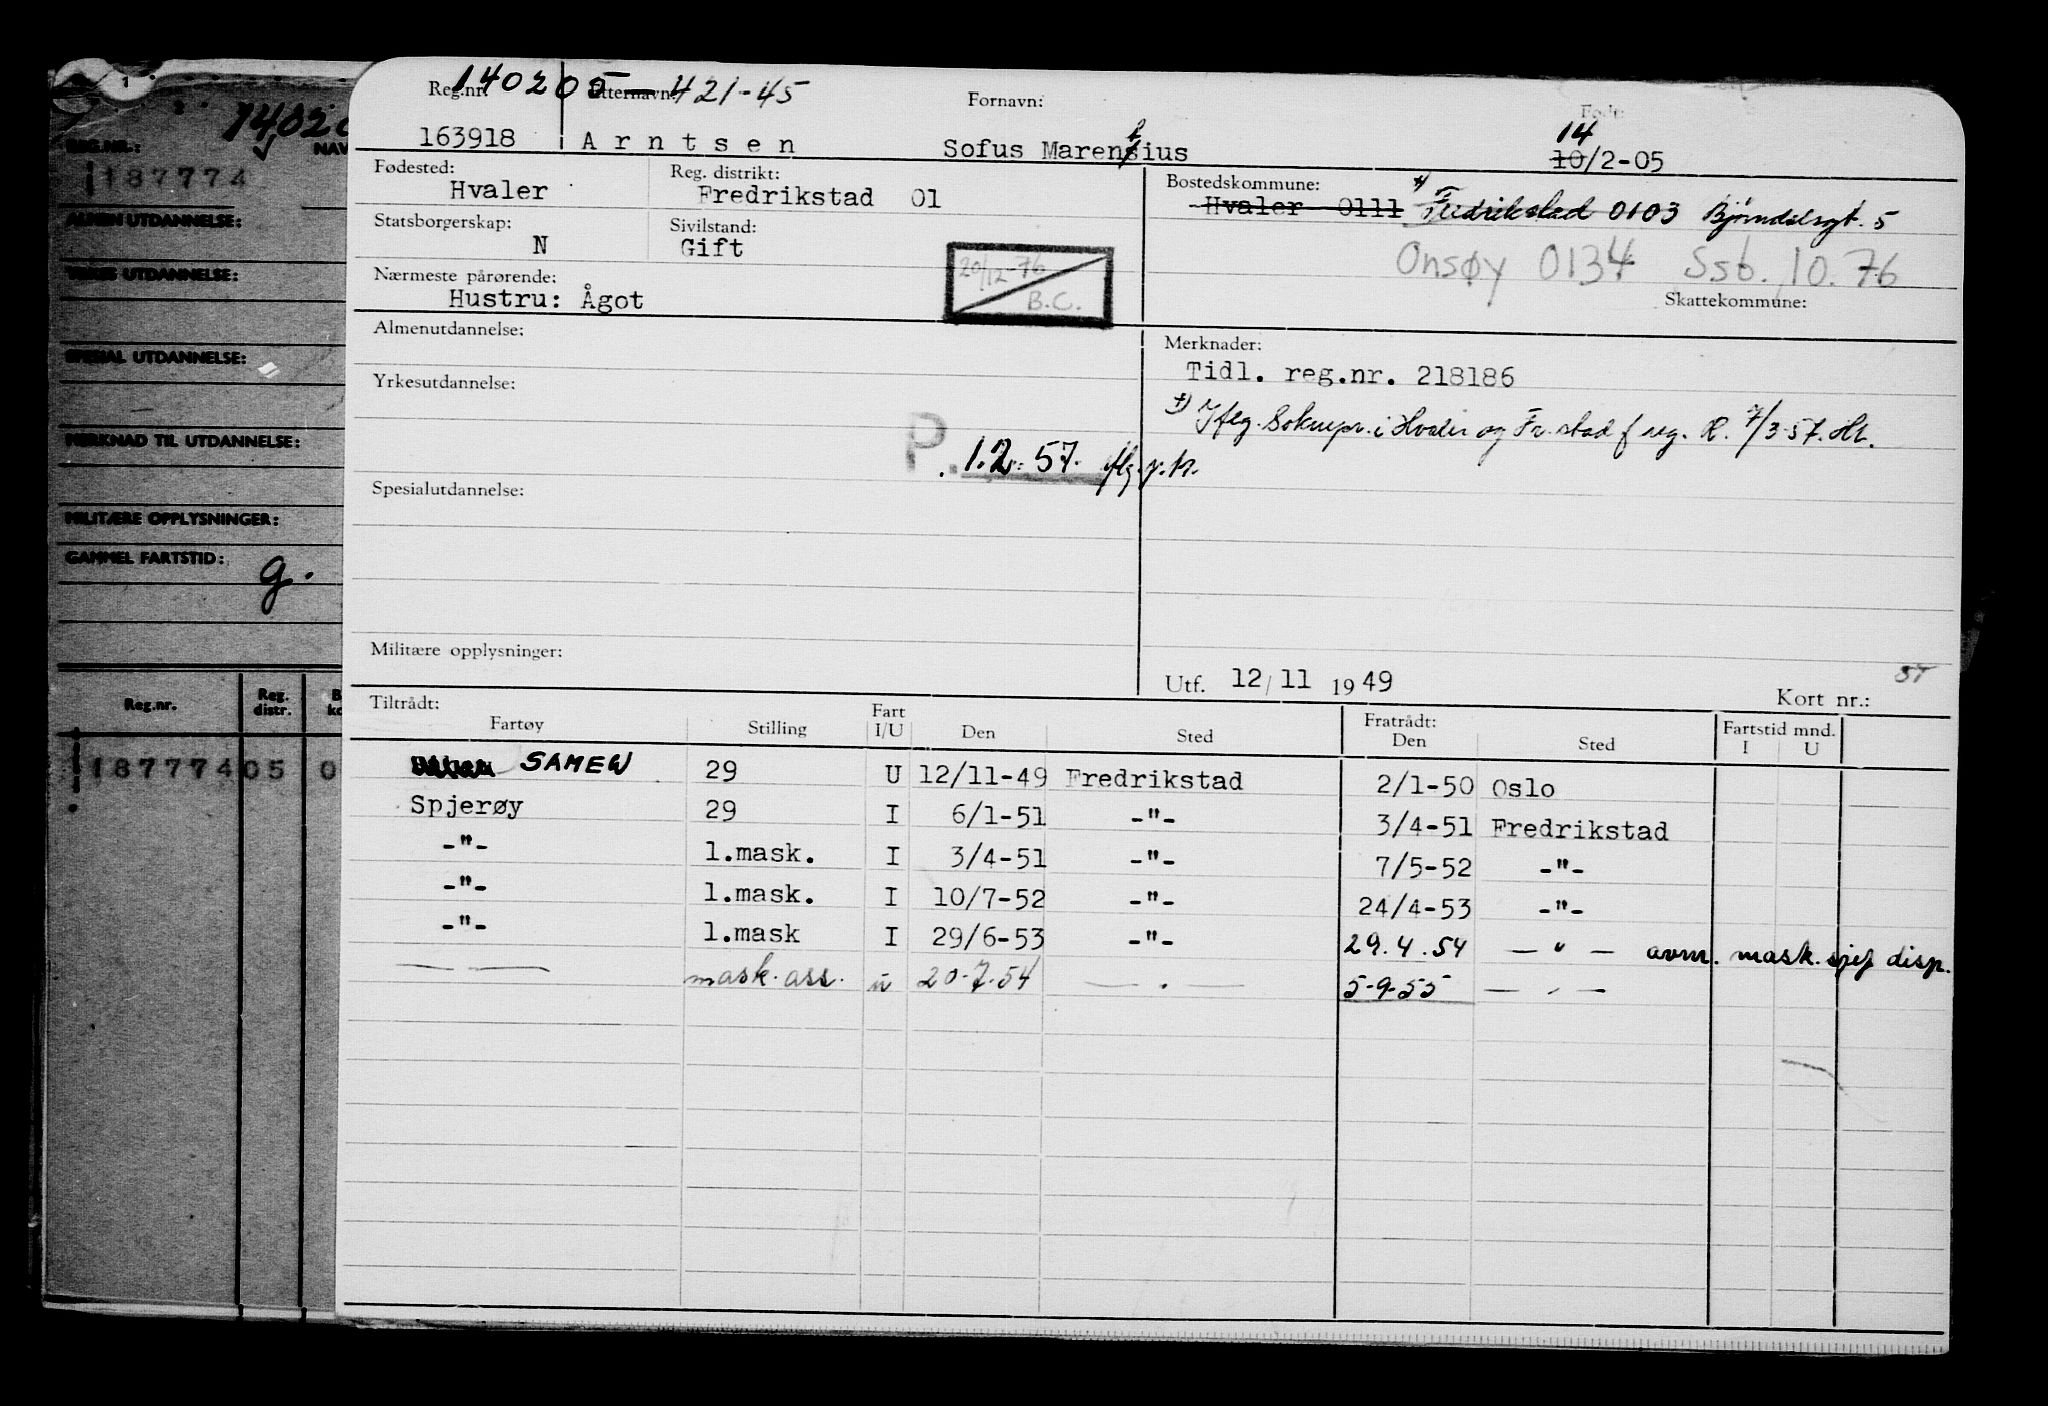 1
140205 — 421-45
Reg.nr. Etternavn: Fornavn: Født:
163918 Arntsen Sofus Marensius 14 10/2-05
Fødested: Hvaler Reg. distrikt: Fredrikstad 01
Bostedskommune: Hvaler 0111 +) Fredrikstad 0103 Bjørndalsgt. 5
Statsborgerskap: N Sivilstand: Gift
Onsøy 0134 Ssb. 10.76
20/12-76
B.C.
Nærmeste pårørende: Hustru: Ågot
Skattekommune:
Almenutdannelse:
Merknader:
Tidl. reg.nr. 218186
Yrkesutdannelse:
+) Iflg. Soknepr. i Hvaler og Fr.stad f.reg. R. 7/3-57. Hl.
P. 1.2.57. iflg.
Spesialutdannelse:
Militære opplysninger:
Utf. 12/11 1949
Kort nr.:
Tiltrådt: Fratrådt:
Fartøy Stilling Fart I/U Den Sted Den Sted Fartstid mnd. I U
SAMEW 29 U 12/11-49 Fredrikstad 2/1-50 Oslo
Spjerøy 29 I 6/1-51 -"- 3/4-51 Fredrikstad
-"- 1.mask. I 3/4-51 -"- 7/5-52 -"-
-"- 1.mask. I 10/7-52 -"- 24/4-53 -"-
-"- 1.mask I 29/6-53 -"- 29.4.54 — " — avm. mask.sjef disp.
— — mask.ass. u 20.7.54 — . — 5-9-55 — . —
1402
REG.NR.: NAV
187774
ALMEN UTDANNELSE:
YRKES UTDANNELSE:
SPESIAL UTDANNELSE:
MERKNAD TIL UTDANNELSE:
MILITÆRE OPPLYSNINGER:
GAMMEL FARTSTID: g.
Reg.nr. Reg. distr.
187774 05 0